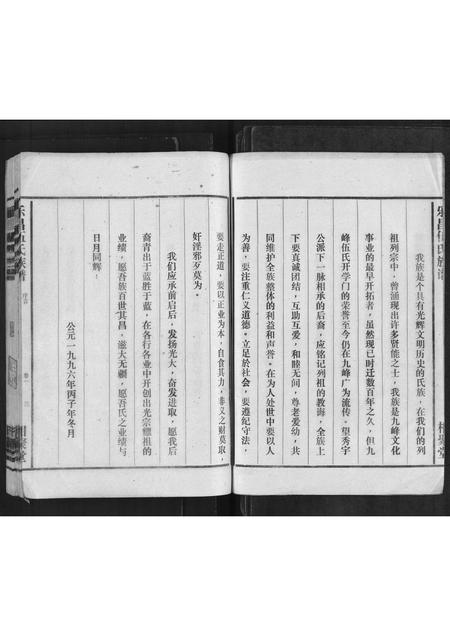 乐昌伍氏族谱
我族是个具有光辉文明历史的氏族，在我们的列
祖列宗中，曾涌现出许多贤能之士，我族是九峰文化
事业的最早开拓者，虽然现已时迁数百年之久，但九
峰伍氏开学门的荣誉至今仍在九峰广为流传。望秀宇
公派下一脉相承的后裔，应铭记列祖的教诲，全族上
下要真诚团结，互助互爱，和睦无间，尊老爱幼，共
同维护全族整体的利益和声誉。在为人处世中要以人
为善，要注重仁义道德。立足於社会，要遵纪守法，
要走正道，要以正业为本，自食其力，非义之财莫取，
奸淫邪歹莫为。
我们应承前启后，发扬光大，奋发进取，愿我后
裔青出于蓝胜于蓝，在各行各业中开创出光宗耀祖的
业绩，愿吾族百世其昌，滋大无疆，愿吾氏之业绩与
日月同辉！
公元一九九六年丙子年冬月
乐昌伍氏族谱
序言